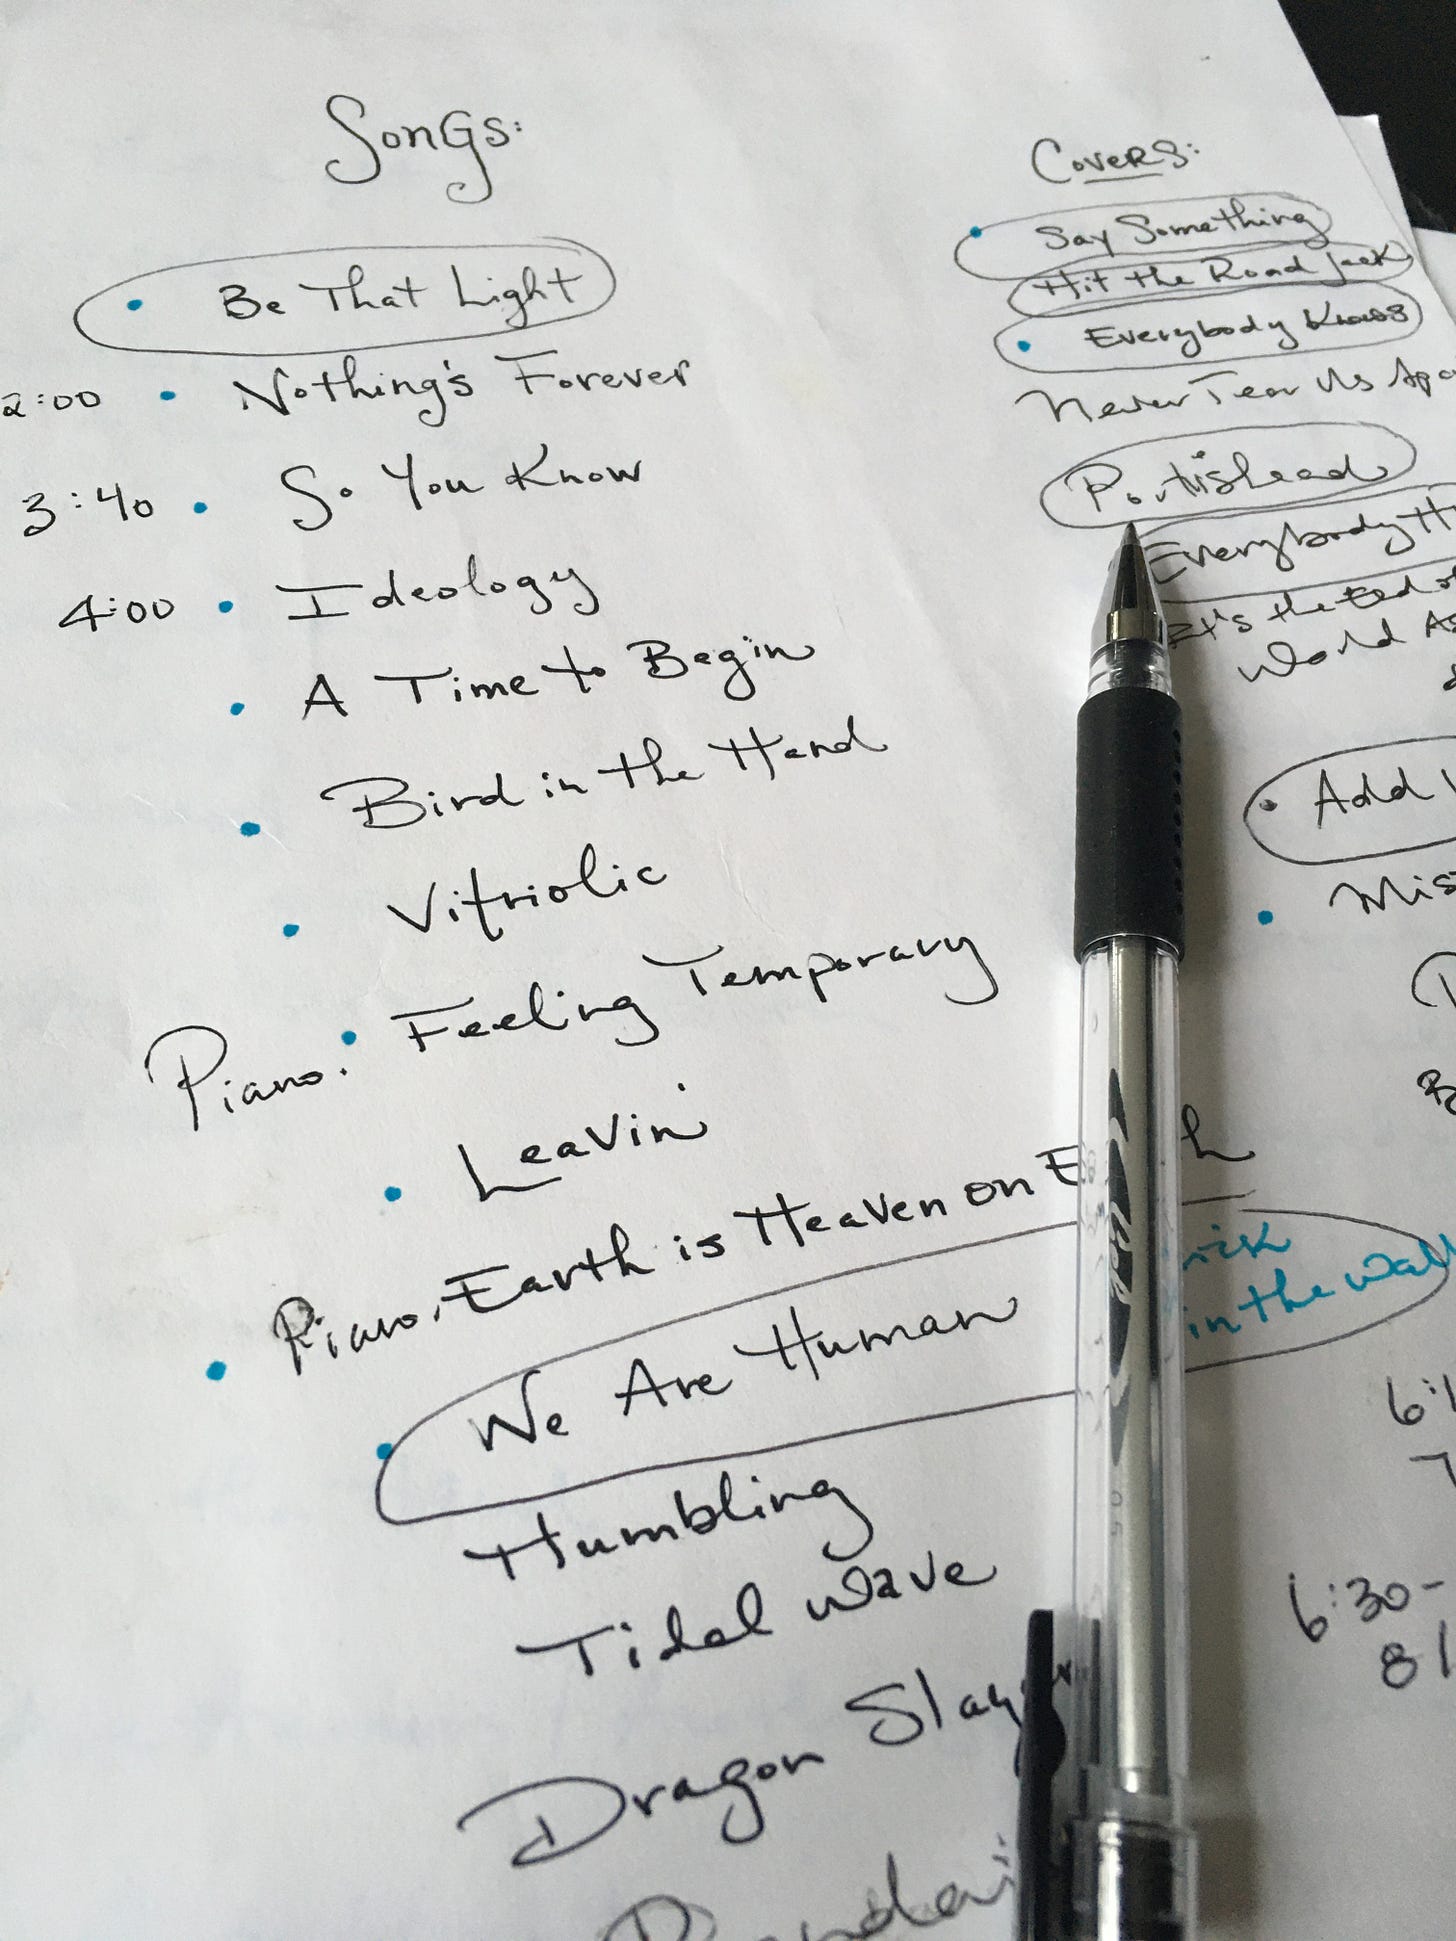 Songs:
Be That Light
2:00 Nothing's Forever
3:40 So You Know
4:00 Ideology
A Time to Begin
Bird in the Hand
Vitriolic
Piano: Feeling Temporary
Leavin'
Piano: Earth is Heaven on
We Are Human
Humbling
Tidal Wave
Dragon
Covers:
Say Something
Hit the Road Jack
Everybody Knows
Never Tear Us
Portishead
Everybody
It's the End
World
Add
in the wall
6:30-